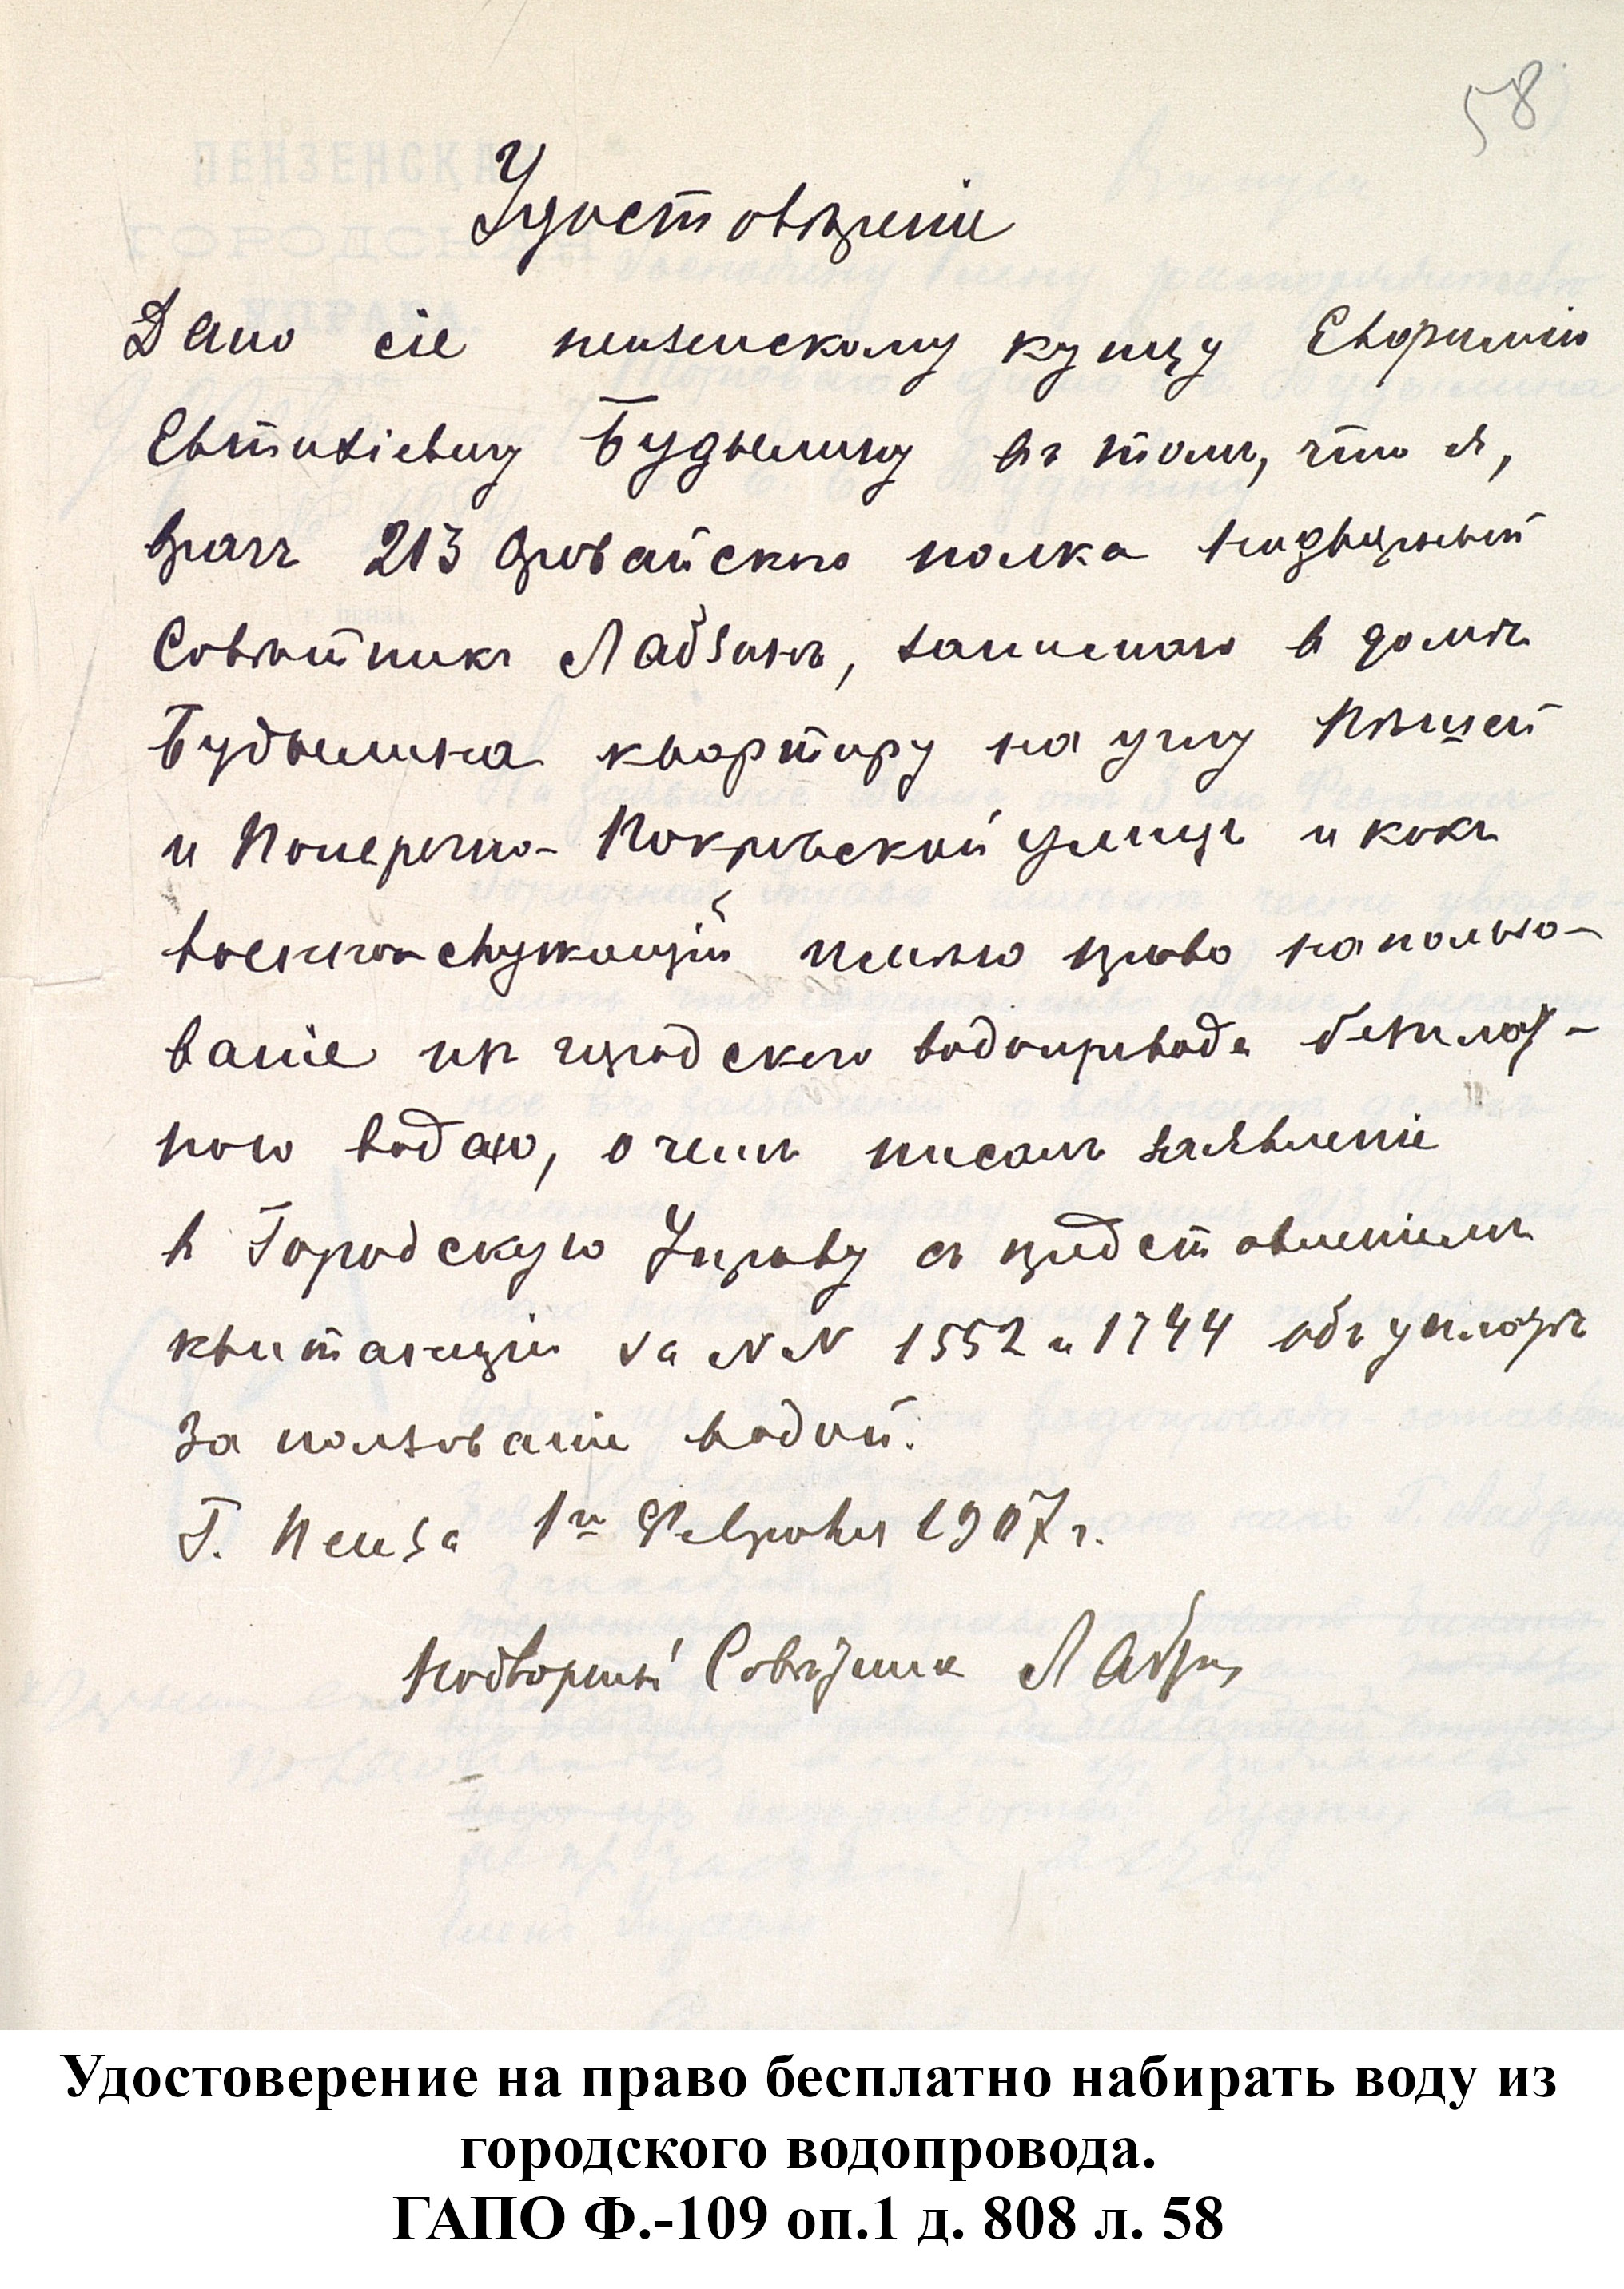 58
Удостовѣреніе
Дано сіе пензенскому купцу Евфимію
Евтихіевичу Будылину въ томъ, что я,
врачъ 213 Оровайского полка надворный
Совѣтникъ Лабзинъ, занимаю в домѣ
Будылина квартиру на углу Пѣшей
и Поперечно-Покровской улицъ и какъ
военнослужащій имѣю право на пользо-
ваніе изъ городского водопровода безплат-
ною водою, о чемъ писалъ заявленіе
в Городскую Управу съ представленіемъ
квитанціи за NN 1552 и 1744 объ уплатѣ
за пользованіе водой.
Г. Пенза 1го Февраля 1907 г.
Надворный Совѣтникъ Лабзинъ
Удостоверение на право бесплатно набирать воду из
городского водопровода.
ГАПО Ф.-109 оп.1 д. 808 л. 58